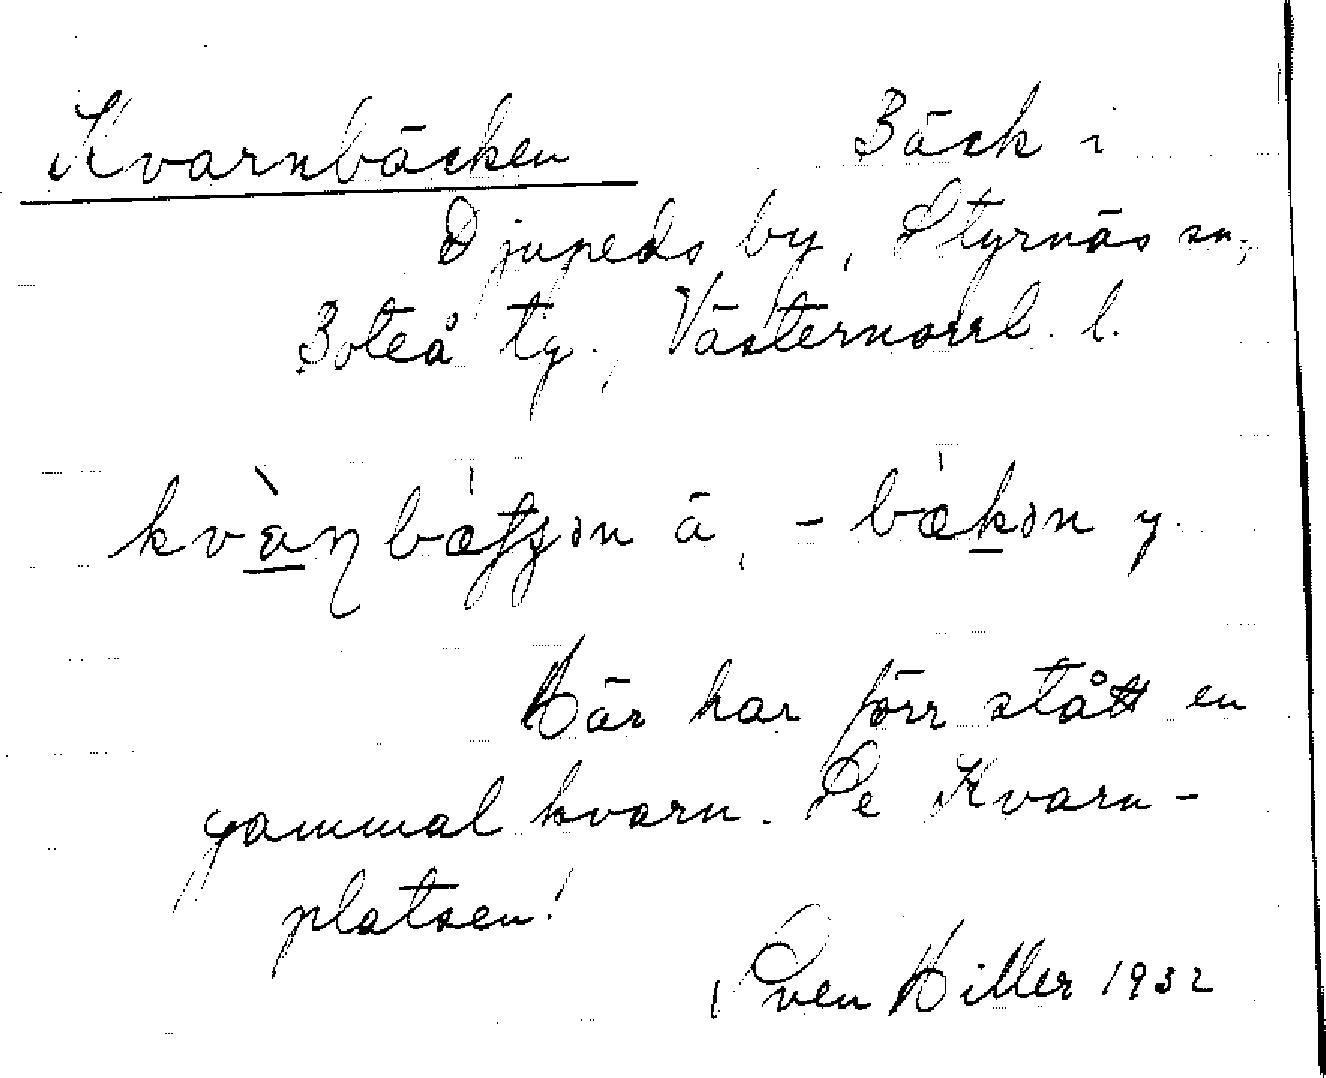 Kvarnbäcken Bäck i
Djupeds by, Styrnäs sn,
Boteå tg., Västernorrl. l.
kvàɳbæʹtʃən ä, -bæʹkən y.
Här har förr stått en
gammal kvarn. Se Kvarn-
platsen!
Sven Hiller 1932